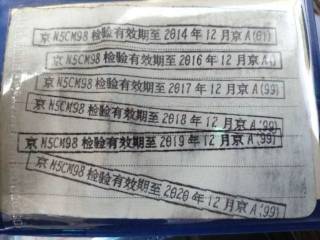 京N5CM98检验有效期至2014年12月京A(01)
京N5CM98检验有效期至2016年12月京A(
京N5CM98检验有效期至2017年12月京A(99)
京N5CM98检验有效期至2018年12月京A(99)
京N5CM98检验有效期至2019年12月京A(99)
京N5CM98检验有效期至2020年12月京A(99)